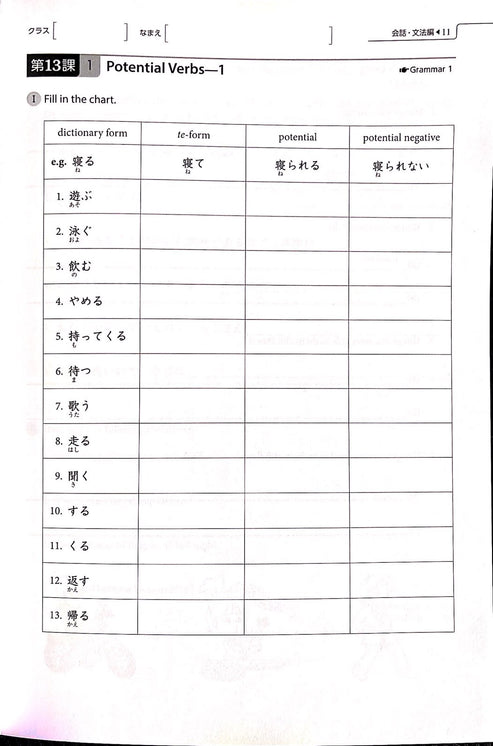 クラス[ ] なまえ[ ] 会話・文法編◀11
第13課 1 Potential Verbs—1 ☛Grammar 1
Ⅰ Fill in the chart.
dictionary form te-form potential potential negative
e.g. 寝る 寝て 寝られる 寝られない
ね ね ね ね
1. 遊ぶ
あそ
2. 泳ぐ
およ
3. 飲む
の
4. やめる
5. 持ってくる
も
6. 待つ
ま
7. 歌う
うた
8. 走る
はし
9. 聞く
き
10. する
11. くる
12. 返す
かえ
13. 帰る
かえ